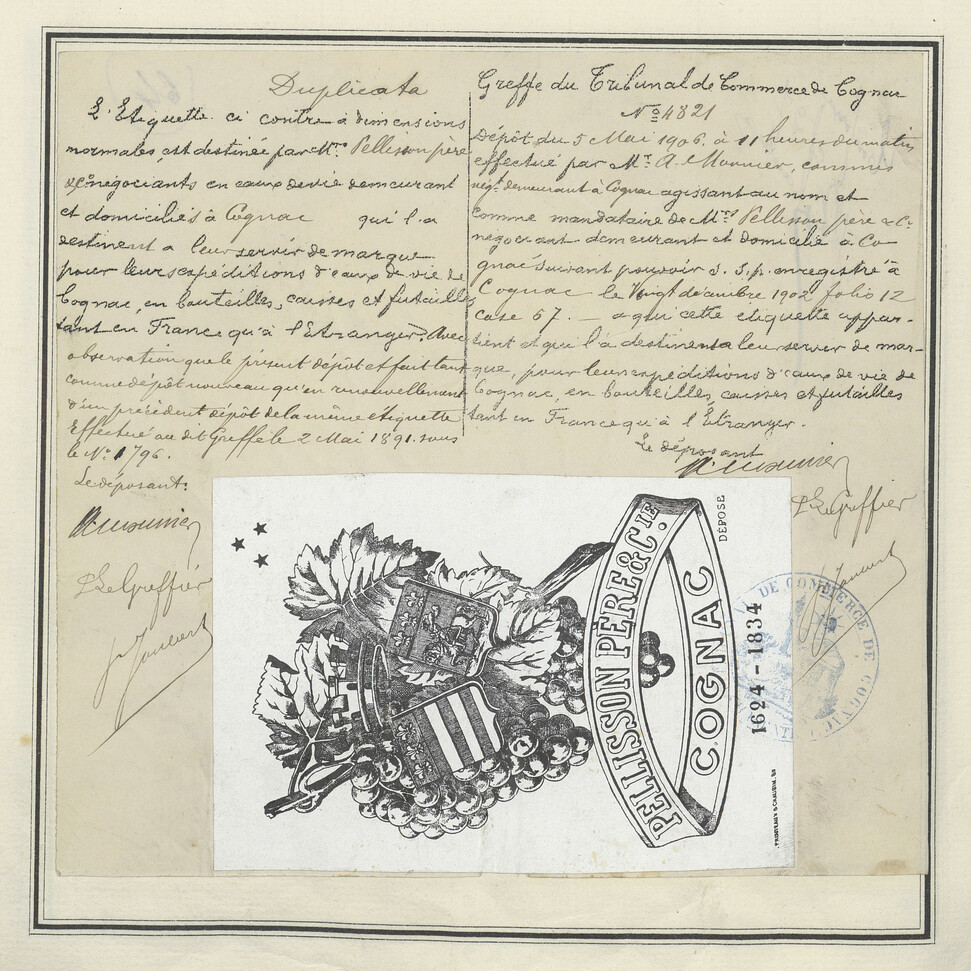 Duplicata
L'Etiquette ci contre à dimensions
normales, est destinée par Mrs Pellisson père
& Co négociants en eaux de vie demeurant
et domiciliés à Cognac qui l'a
destinent a leur servir de marque
pour leurs expéditions d'eaux de vie de
Cognac, en bouteilles, caisses et futailles
tant en France qu'à l'Etranger. Avec
observation que le présent dépôt est fait tant
comme dépôt nouveau qu'en renouvellement
d'un précédent dépôt de la même étiquette
Effectué au dit Greffe le 2 Mai 1891 sous
le No 1796.
Le déposant:
A. Monnier
P. Le Greffier
Greffe du Tribunal de Commerce de Cognac
No 4821
Dépôt du 5 Mai 1906 à 11 heures du matin
effectué par Mr. A. Monnier, commis
négt. demeurant à Cognac agissant au nom et
comme mandataire de Mrs Pellisson père & Co
négociant demeurant et domicilié à Co-
gnac suivant pouvoir s. s. p. enregistré à
Cognac le Vingt décembre 1902 folio 12
case 67. — a qui cette etiquette appar-
tient et qui l'a destinent a leur servir de mar-
que, pour leurs expéditions d'eaux de vie de
Cognac, en bouteilles, caisses et futailles
tant en France qu'à l'Étranger.
Le déposant
A. Monnier
P. Le Greffier
PELLISSON PÈRE & CIE.
COGNAC
DÉPOSÉ
1624 - 1834
DE COMMERCE DE COGNAC